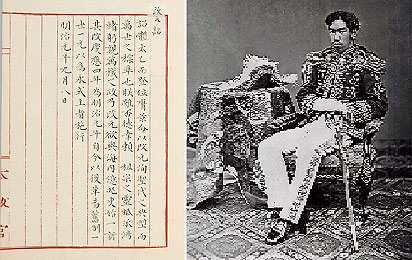 改元詔
詔體太乙而登位膺景命以改元洵聖代之典型而
萬世之標準也朕雖否德幸賴 祖宗之靈祗承鴻
緒躬親萬機之政乃改元欲與海内億兆更始一新
其改慶應四年為明治元年自今以後革易舊制一
世一元以為永式主者施行
明治元年九月八日
太政官